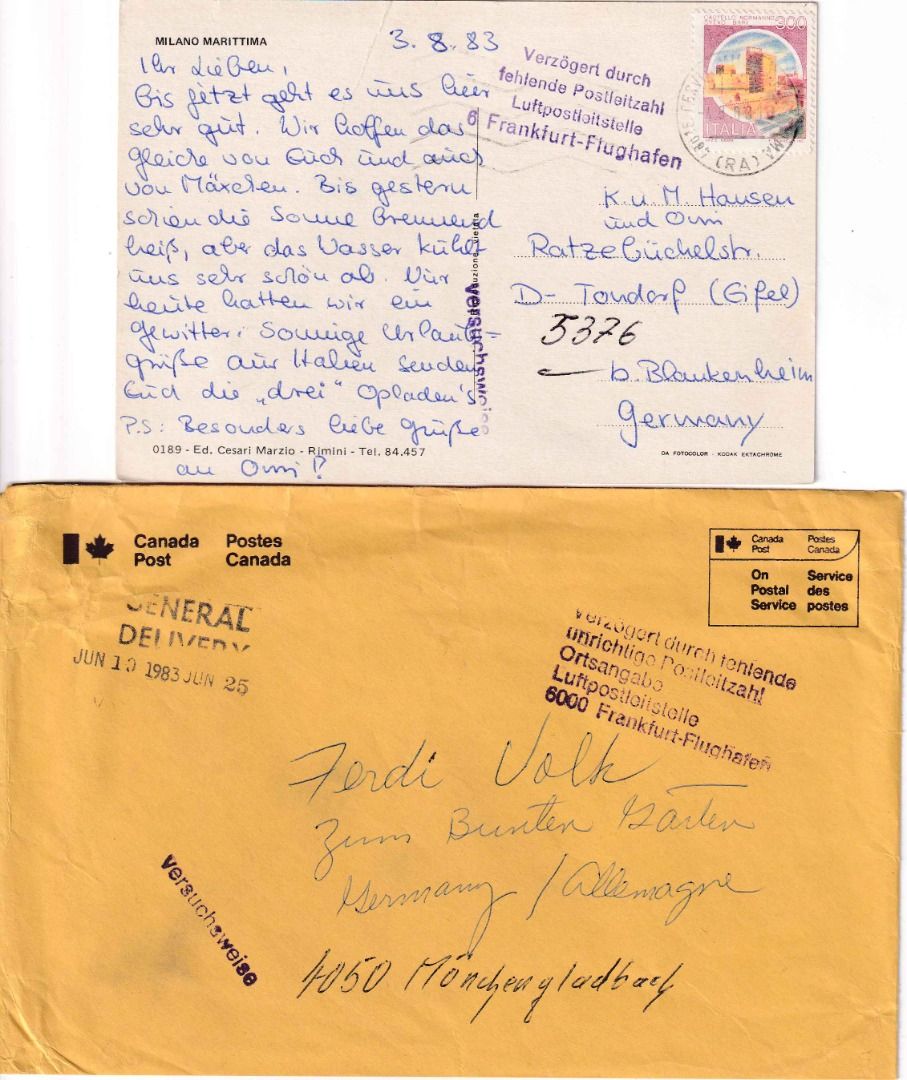 MILANO MARITTIMA
3.8.83
Ihr Lieben,
Bis jetzt geht es uns hier
sehr gut. Wir hoffen das
gleiche von Euch und auch
von Mäxchen. Bis gestern
schien die Sonne brennend
heiß, aber das Wasser kühlt
uns sehr schön ab. Nur
heute hatten wir ein
Gewitter. Sonnige Urlaub-
grüße aus Italien senden
Euch die „drei" Opladen's
P.S.: Besonders liebe Grüße
an Omi!?
0189 - Ed. Cesari Marzio - Rimini - Tel. 84.457
Verzögert durch
fehlende Postleitzahl
Luftpostleitstelle
6 Frankfurt-Flughafen
CASTELLO NORMANNO
300
ITALIA
(RA)
Versuchsweise
K. u. M. Hansen
und Omi
Ratzebüchelstr.
D- Tondorf (Eifel)
5376
b. Blankenheim
Germany
DA FOTOCOLOR - KODAK EKTACHROME
Canada Postes
Post Canada
Canada Postes
Post Canada
On Service
Postal des
Service postes
GENERAL
DELIVERY
JUN 10 1983 JUN 25
Verzögert durch fehlende
unrichtige Postleitzahl
Ortsangabe
Luftpostleitstelle
6000 Frankfurt-Flughafen
Ferdi Volk
Zum Bunten Garten
Germany / Allemagne
Versuchsweise
4050 Mönchengladbach